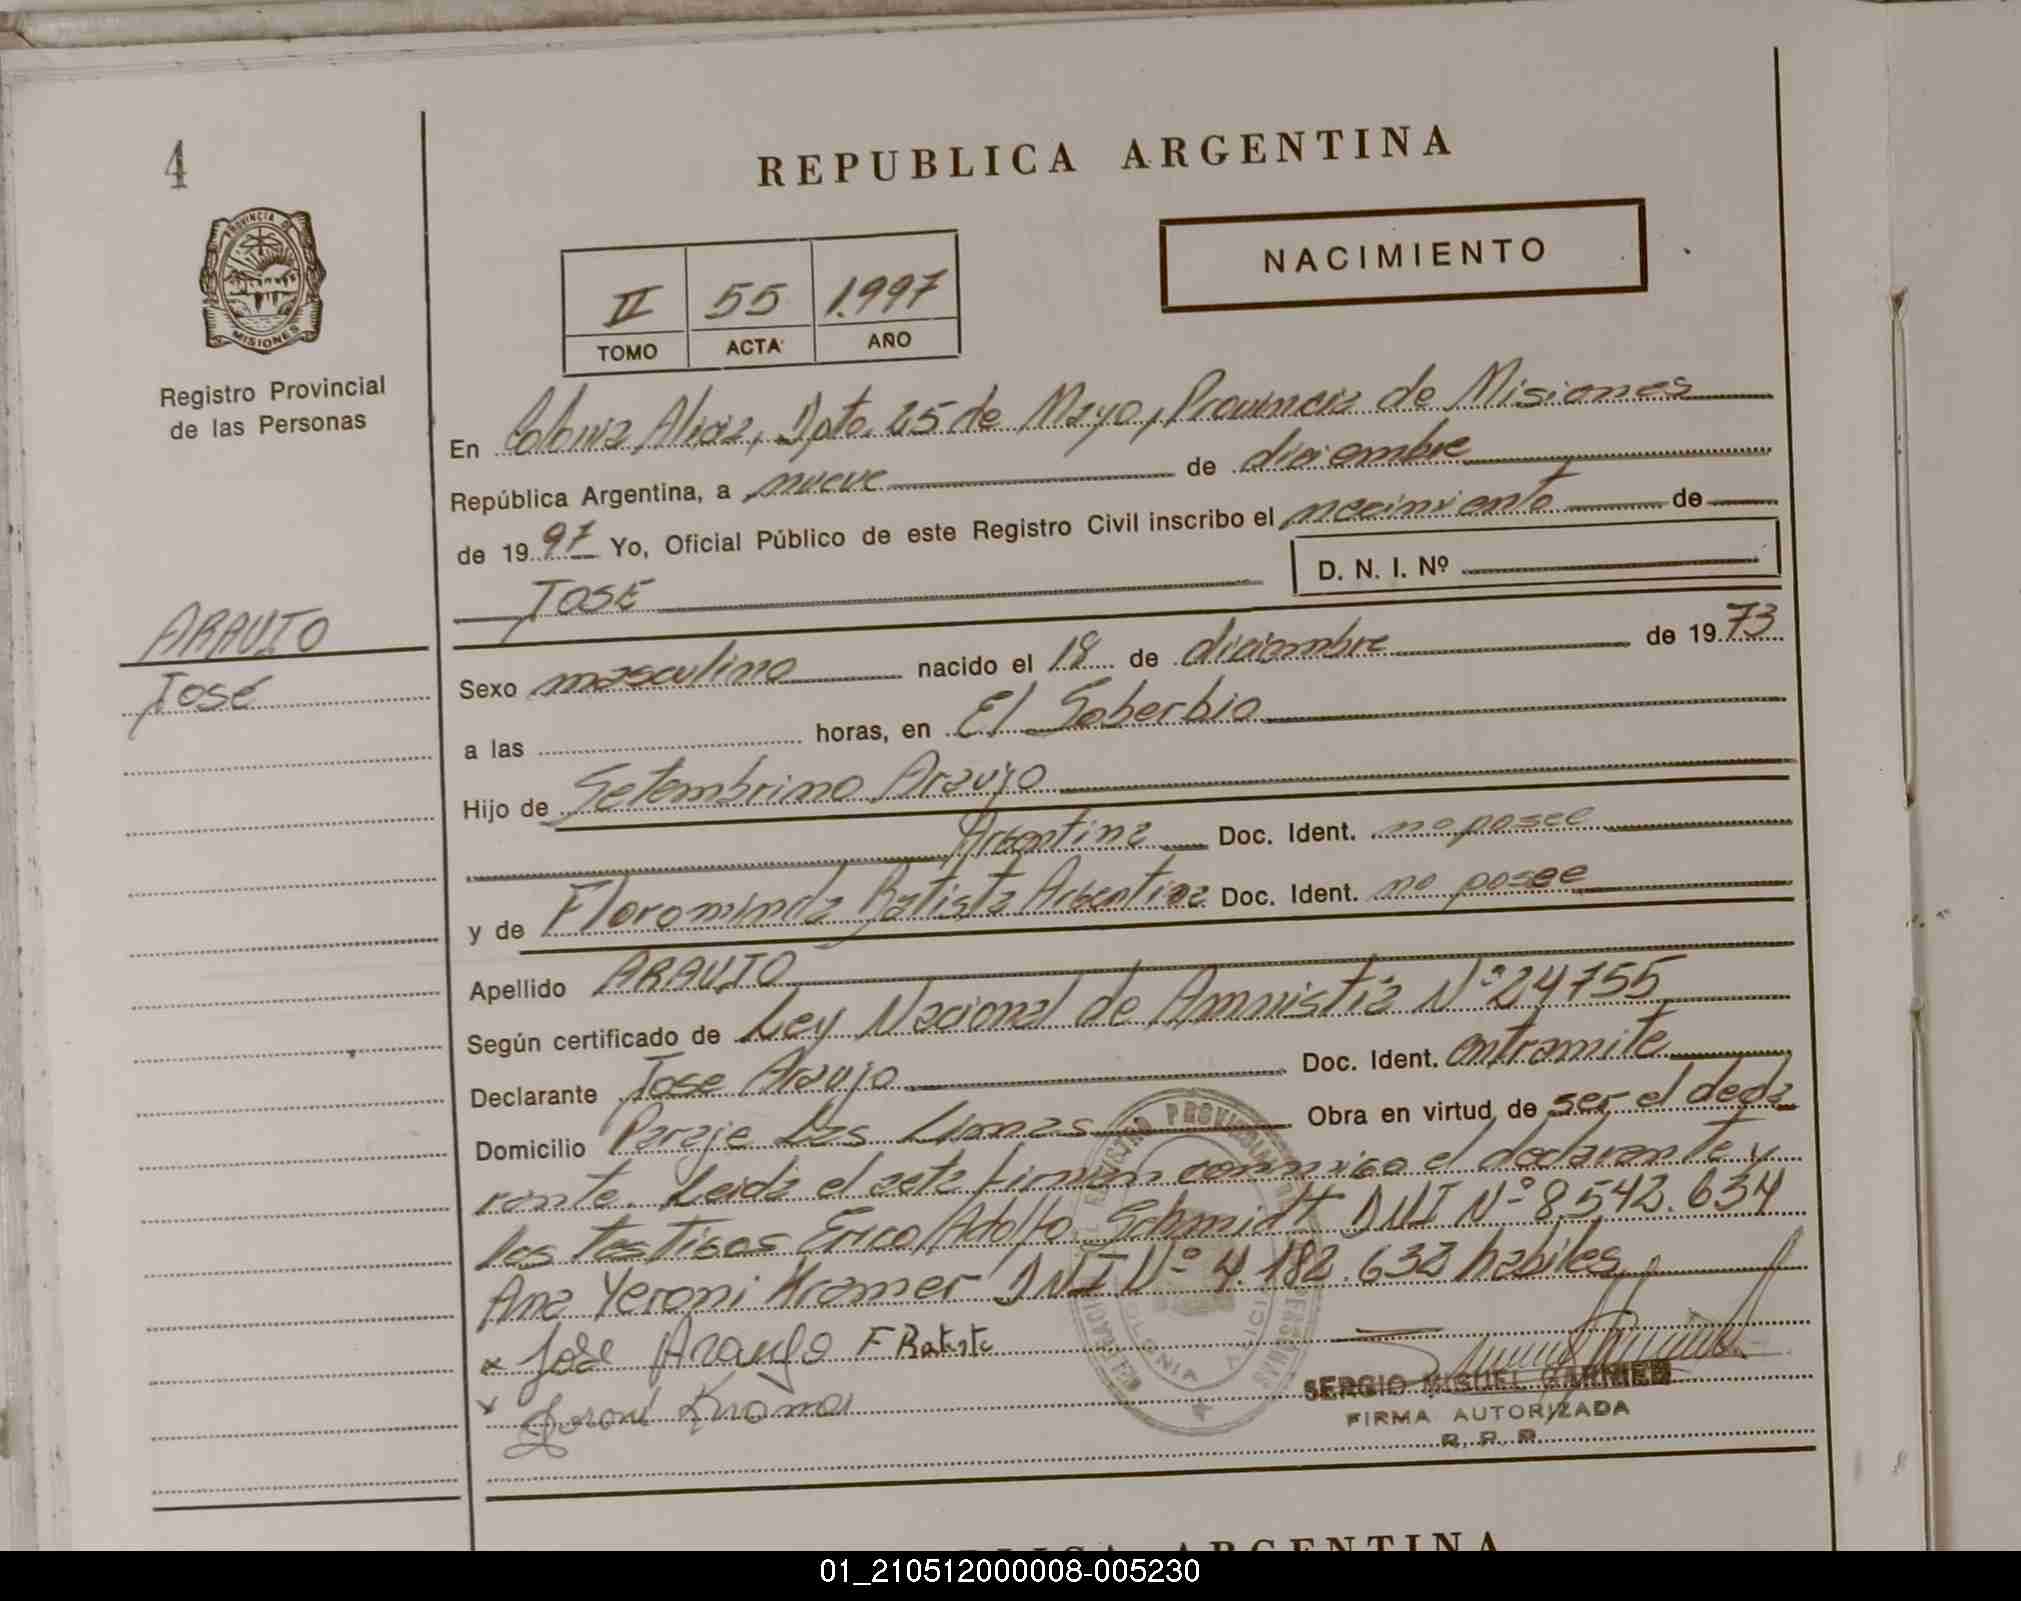 4
REPUBLICA ARGENTINA
PROVINCIA DE
MISIONES
NACIMIENTO
II 55 1.997
TOMO ACTA AÑO
Registro Provincial
de las Personas
En Colonia Alicia, Dpto. 25 de Mayo, Provincia de Misiones
República Argentina, a nueve de diciembre
de 19 97 Yo, Oficial Público de este Registro Civil inscribo el nacimiento de
JOSE D. N. I. Nº
ARAUJO
José
Sexo masculino nacido el 18 de diciembre de 19 73
a las horas, en El Soberbio
Hijo de Setembrino Araujo
Argentina Doc. Ident. no posee
y de Florominda Batista Argentina Doc. Ident. no posee
Apellido ARAUJO
Según certificado de Ley Nacional de Amnistia Nº 24755
Declarante Jose Araujo Doc. Ident. en tramite
Domicilio Paraje Las Limas Obra en virtud de ser el decla
rante. Leida el acta firman conmigo el declarante y
los testigos Erico Adolfo Schmidt DNI Nº 8.542.634
Ana Yeroni Kramer DNI Nº 4.182.632 habiles
x Jose Araujo F Batiste
x Yeroni Kramer
SERGIO MIGUEL GARNIER
FIRMA AUTORIZADA
R. P. P.
REPUBLICA ARGENTINA
01_210512000008-005230